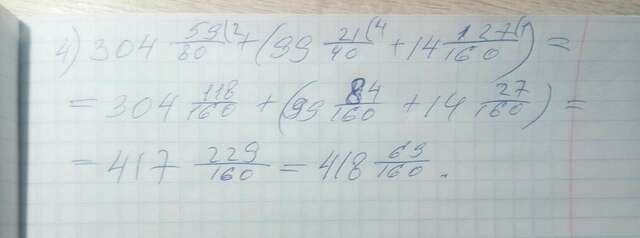 4) 304 59/80 (2 + (99 21/40 (4 + 14 27/160 (1) =
= 304 118/160 + (99 84/160 + 14 27/160) =
= 417 229/160 = 418 69/160.